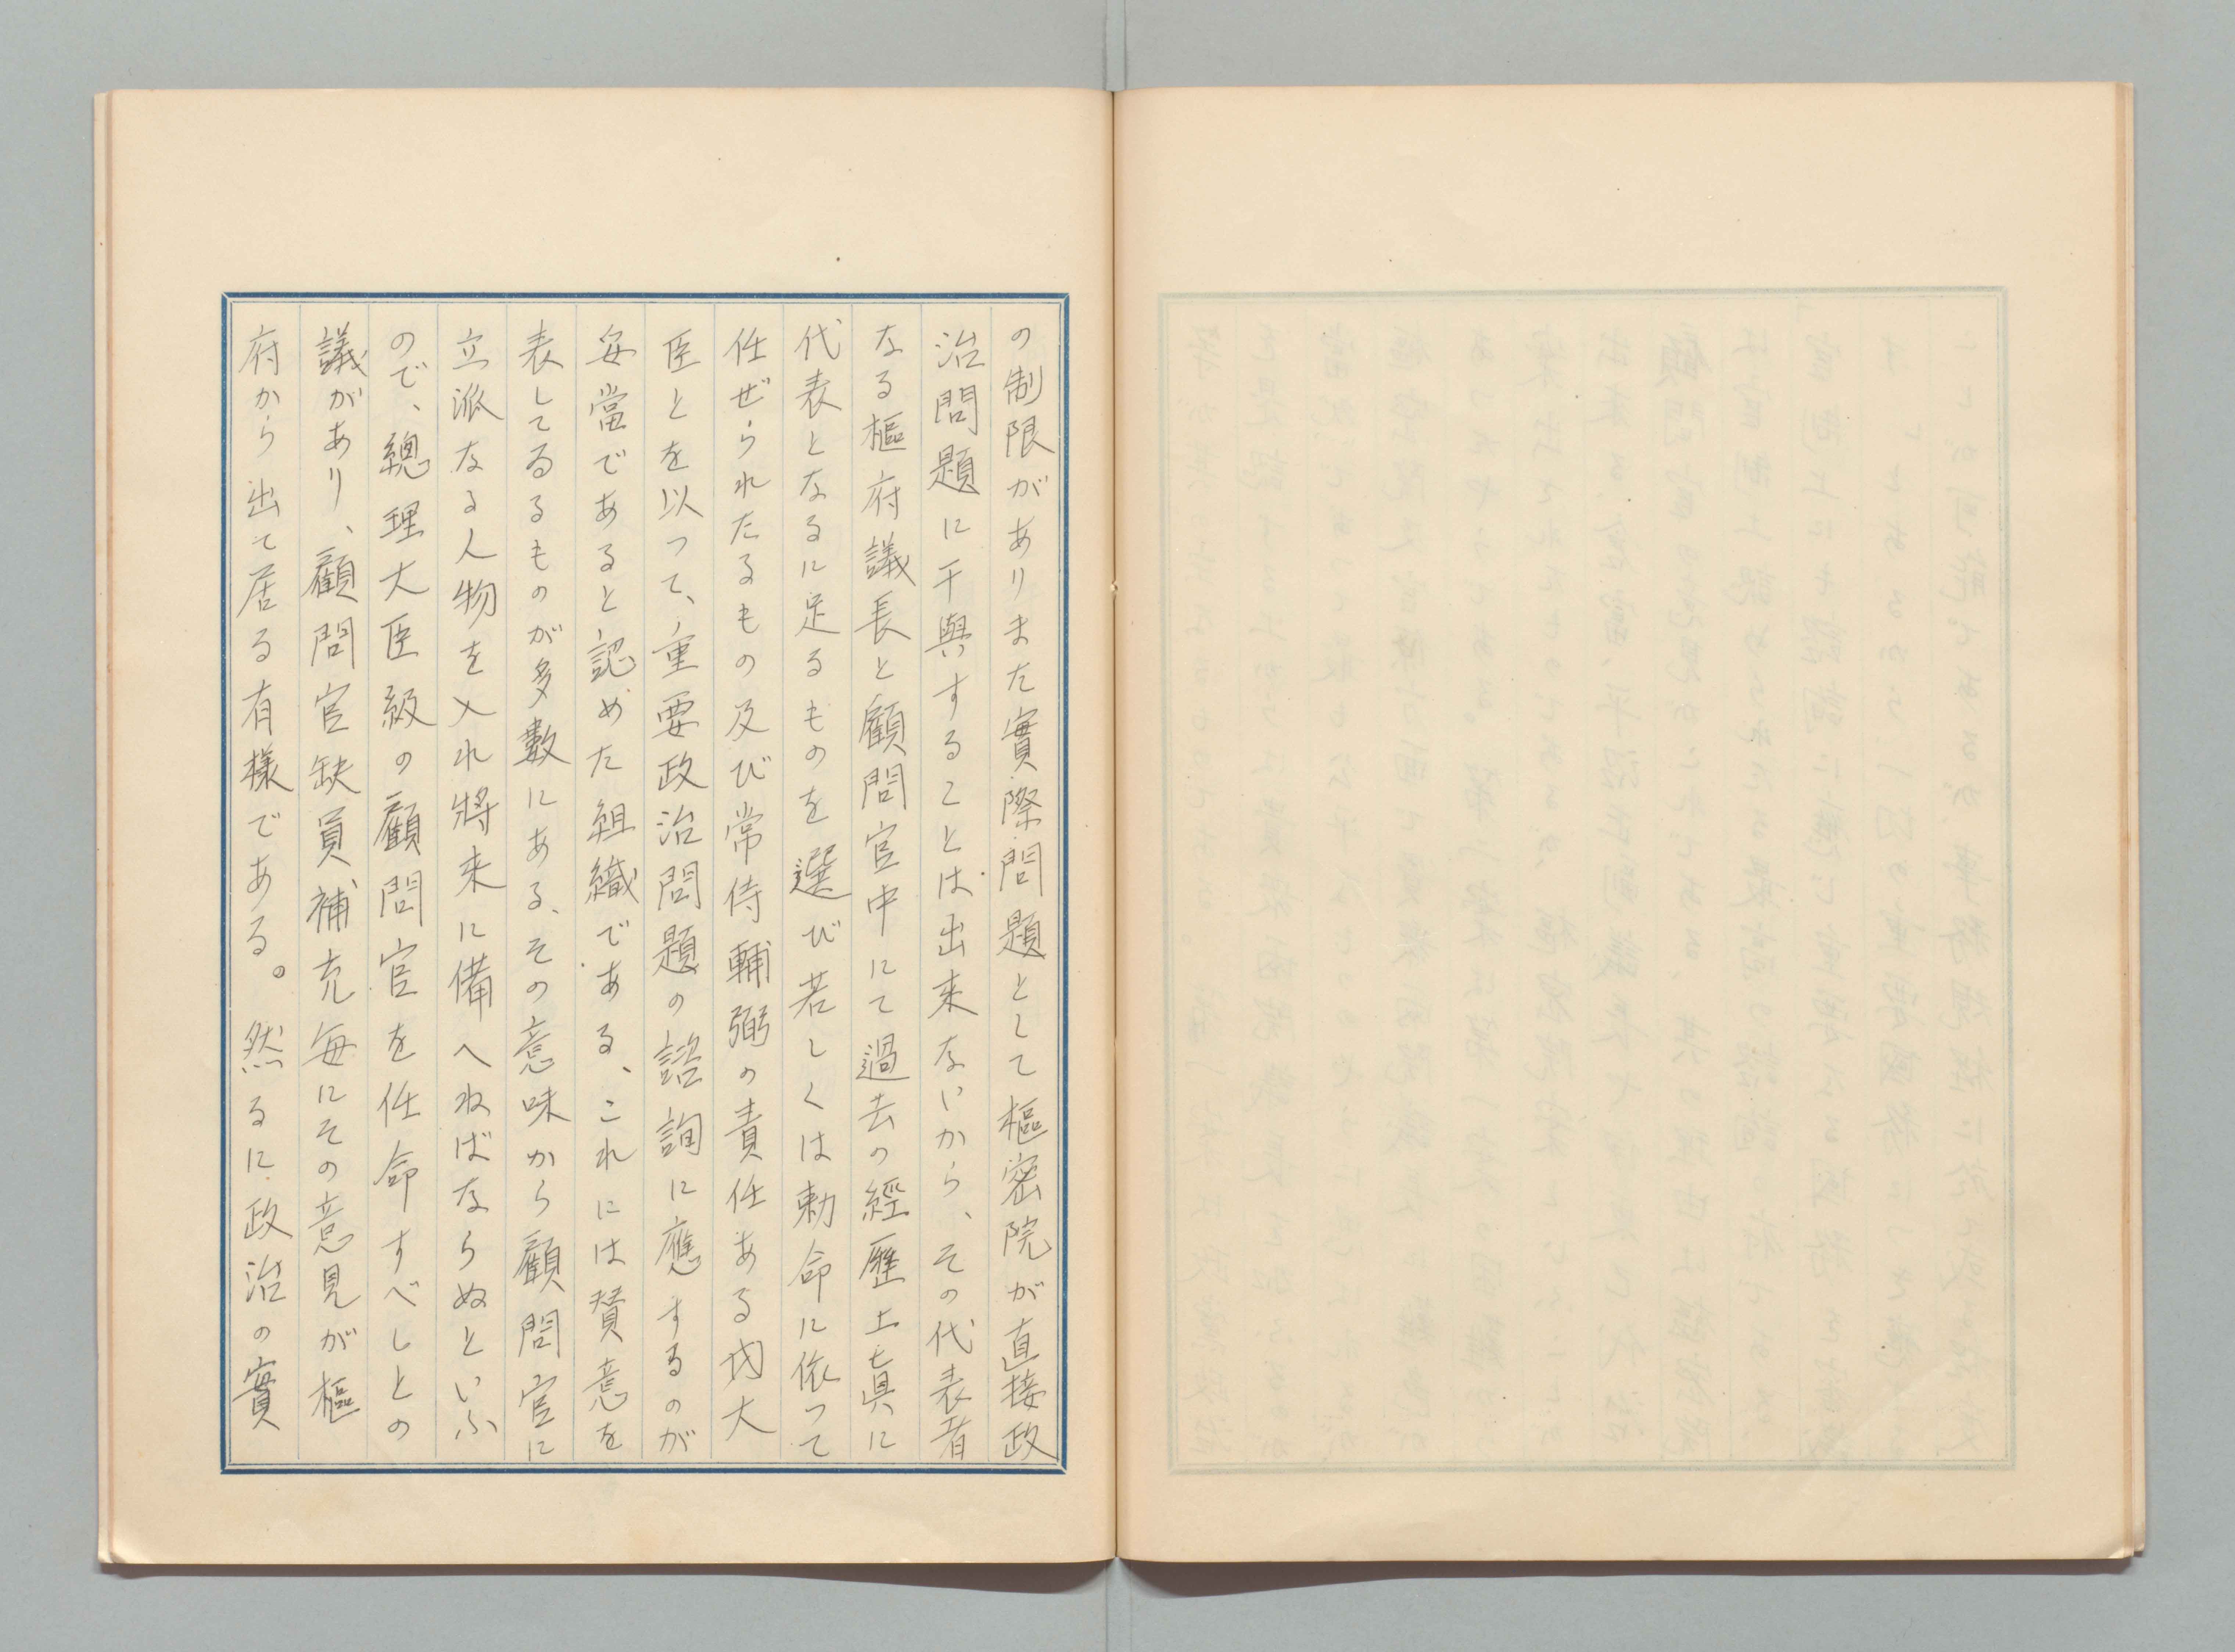 の制限がありまた實際問題として樞密院が直接政
治問題に干與することは出来ないから、その代表者
なる樞府議長と顧問官中にて過去の經歷上眞に
代表となるに足るものを選び若しくは勅命に依って
任ぜられたるもの及び常侍輔弼の責任ある内大
臣とを以って、重要政治問題の諮詢に應するのが
妥當であると認めた組織である、これには賛意を
表してゐるものが多數にある、その意味から顧問官に
立派なる人物を入れ將来に備へねばならぬといふ
ので、總理大臣級の顧問官を任命すべしとの
議があり、顧問官缺員補充每にその意見が樞
府から出て居る有樣である。然るに政治の實